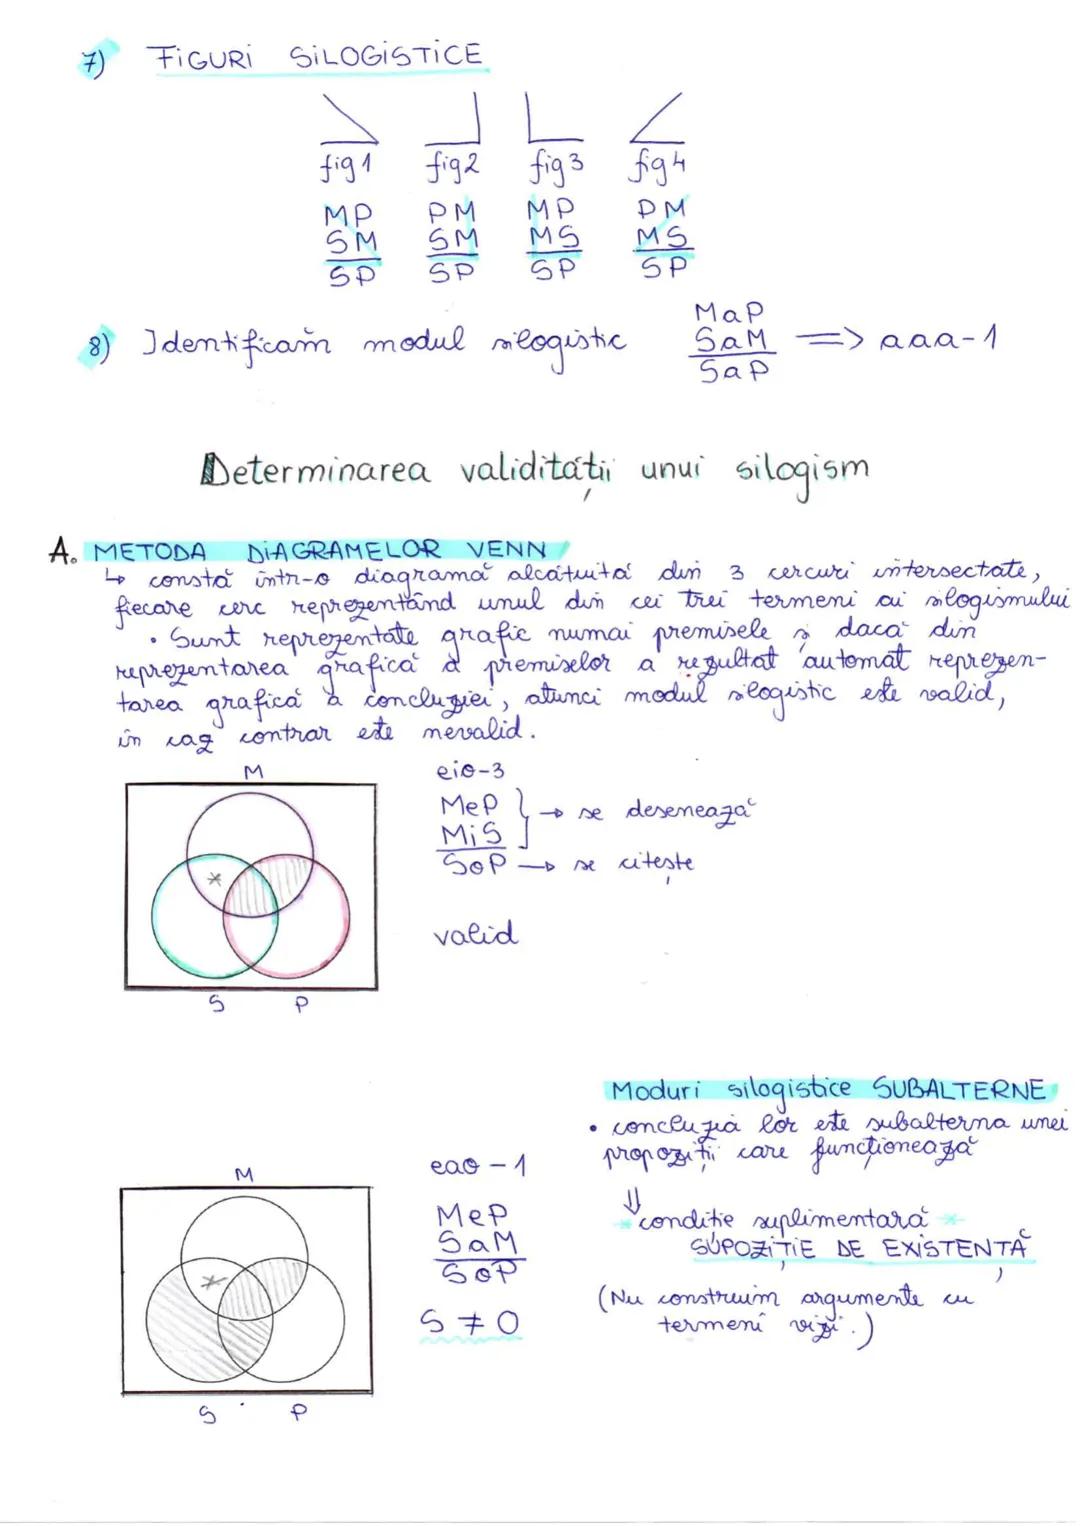 7) FIGURI SILOGISTICE
fig 1 fig 2 fig 3 fig 4
MP PM MP PM
SM SM MS MS
SP SP SP SP
8) Identificăm modul silogistic
MaP
SaM => aaa-1
SaP
Determinarea validității unui silogism
A. METODA DIAGRAMELOR VENN
↳ constă într-o diagramă alcătuită din 3 cercuri intersectate,
fiecare cerc reprezentând unul din cei trei termeni ai silogismului
• Sunt reprezentate grafic numai premisele ș dacă din
reprezentarea grafică a premiselor a rezultat automat reprezen-
tarea grafică a concluziei, atunci modul silogistic este valid,
în caz contrar este nevalid.
M
eio-3
MeP
MiS → se desenează
SoP → se citește
valid
S P
Moduri silogistice SUBALTERNE
• concluzia lor este subalterna unei
propoziții care funcționează
⇓
* condiție suplimentară *
SUPOZIȚIE DE EXISTENȚĂ
(Nu construim argumente cu
termeni vizi.)
M
eao-1
MeP
SaM
SoP
S ≠ 0
S P